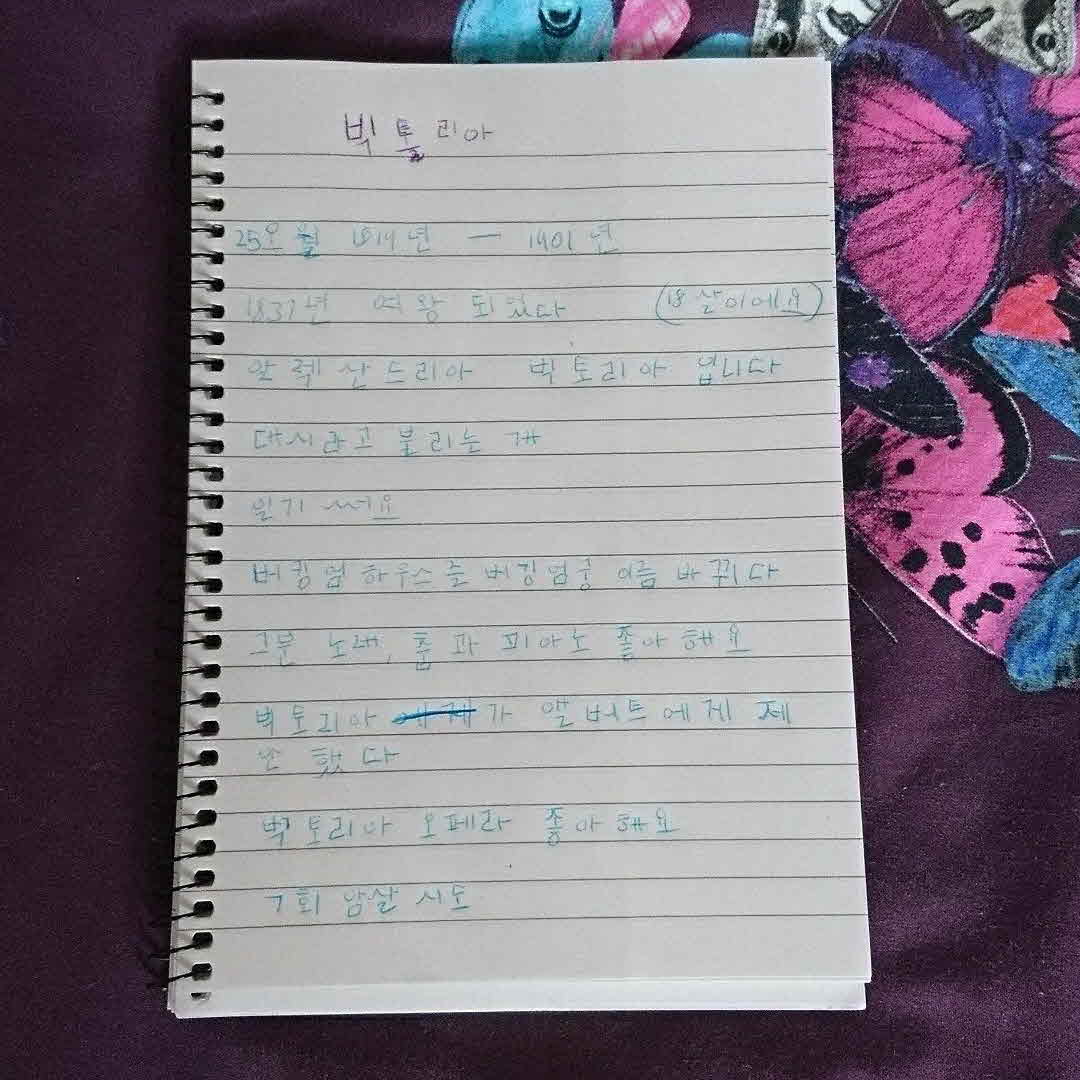 빅톨리아
25오월 1819년 — 1901년
1837년 여왕 되었다 (18살이에요)
알렉산드리아 빅토리아 입니다
대시라고 불리는 개
일기 써요
버킹엄하우스를 버킹엄궁 이름 바뀌다
그분 노래, 춤과 피아노 좋아해요
빅토리아 가 앨버트에게 제
안 했다
빅토리아 오페라 좋아해요
7회 암살 시도